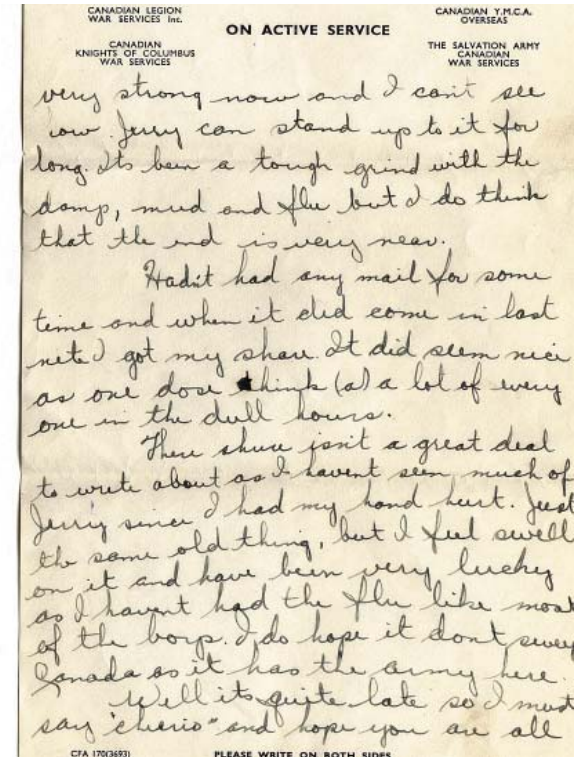 CANADIAN LEGION
WAR SERVICES Inc.
CANADIAN
KNIGHTS OF COLUMBUS
WAR SERVICES
ON ACTIVE SERVICE
CANADIAN Y.M.C.A.
OVERSEAS
THE SALVATION ARMY
CANADIAN
WAR SERVICES
very strong now and I can't see
how Jerry can stand up to it for
long. Its been a tough grind with the
damp, mud and flu but I do think
that the end is very near.
Hadn't had any mail for some
time and when it did come in last
nite I got my share. It did seem nice
as one dose think (a) a lot of every
one in the dull hours.
There shure isn't a great deal
to write about as I havent seen much of
Jerry since I had my hand hurt. Just
the same old thing, but I feel swell
on it and have been very lucky
as I havent had the flu like most
of the boys. I do hope it dont sweep
Canada as it has the army here.
Well its quite late so I must
say "cherio" and hope you are all
CFA 170(3693)
PLEASE WRITE ON BOTH SIDES